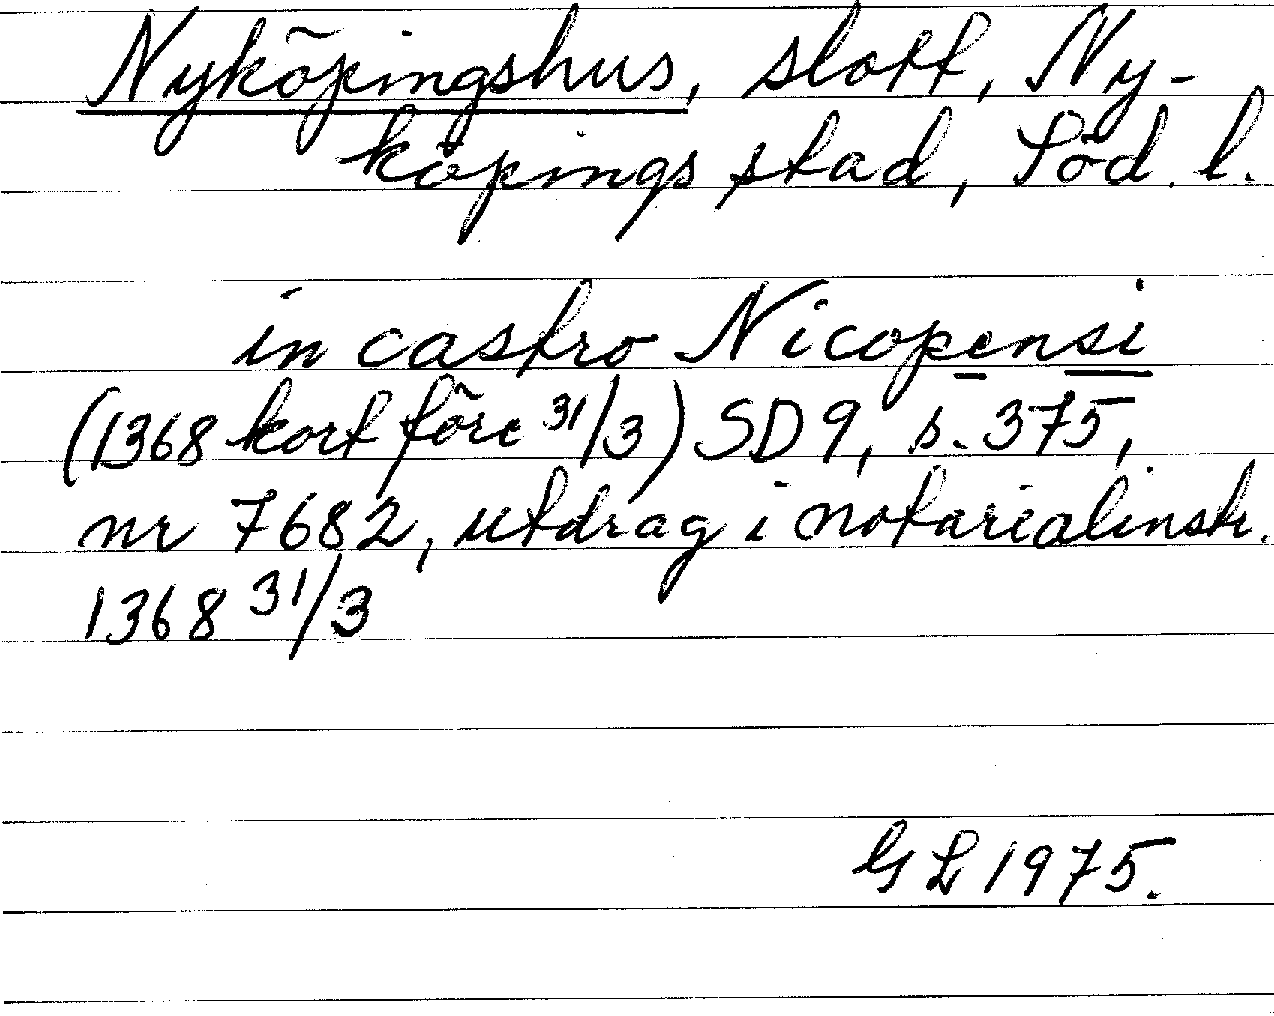 Nyköpingshus, slott, Ny-
köpings stad, Söd. l.
in castro Nicopensi
(1368 kort före 31/3) SD 9, s. 375,
nr 7682, utdrag i notarialinstr.
1368 31/3
GL 1975.